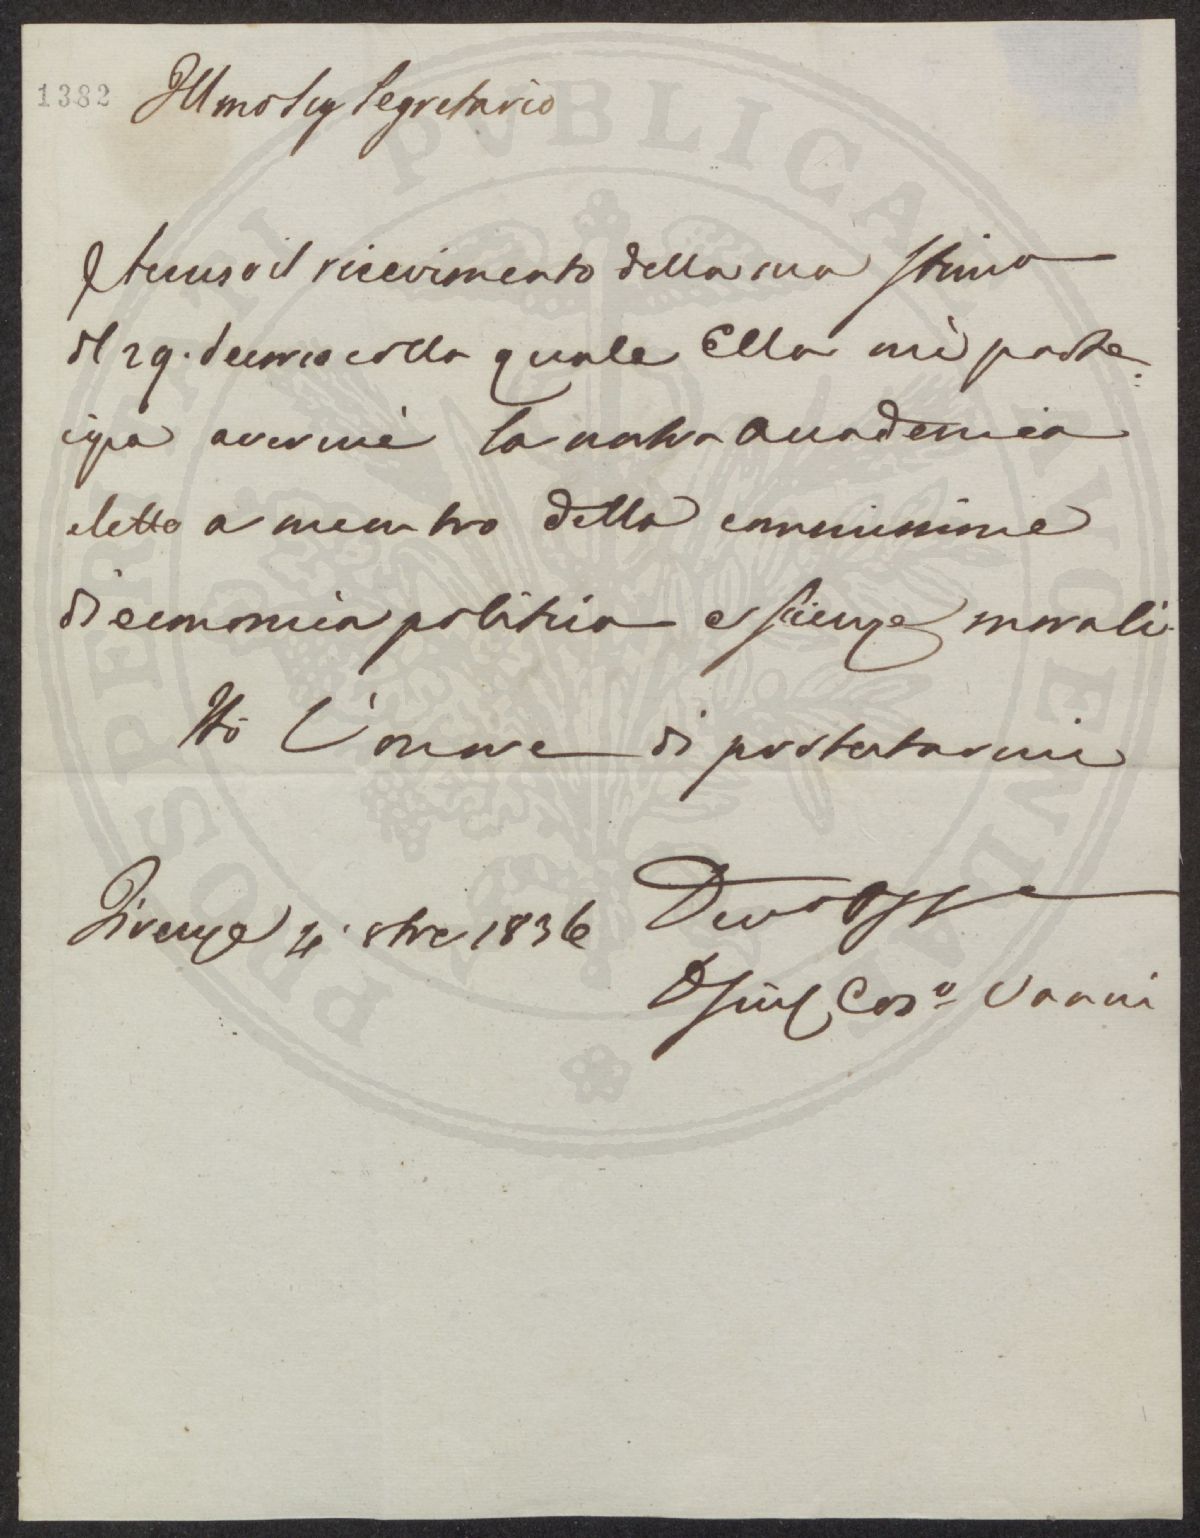 1382
Illmo Sig Segretario
Accuso il ricevimento della sua stima
del 29. decorso colla quale Ella mi parte-
cipa avermi la nostra Accademia
eletto a membro della commissione
di economia politica e scienze morali
Ho l'onore di protestarmi
Firenze 4. 8bre 1836
Devo
Vanni
PROSPERITATI PVBLICAE AVGENDAE